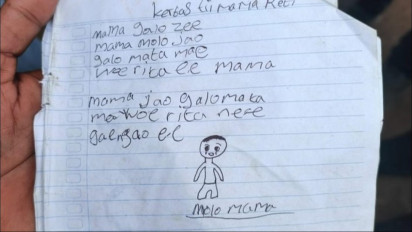 kertas tii mama Reti
mama galo zee
mama molo jao
galo mata mae
wee rita ee mama
mama jao galo mata
woe rita neee
ee
molo mama